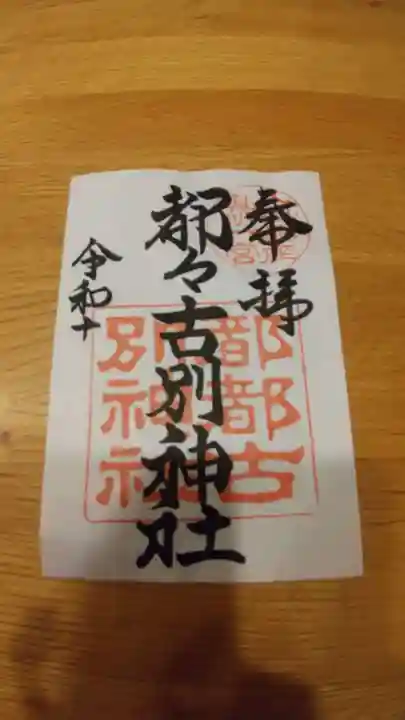 奉拝
都々古別神社
令和十
都都古
別神社